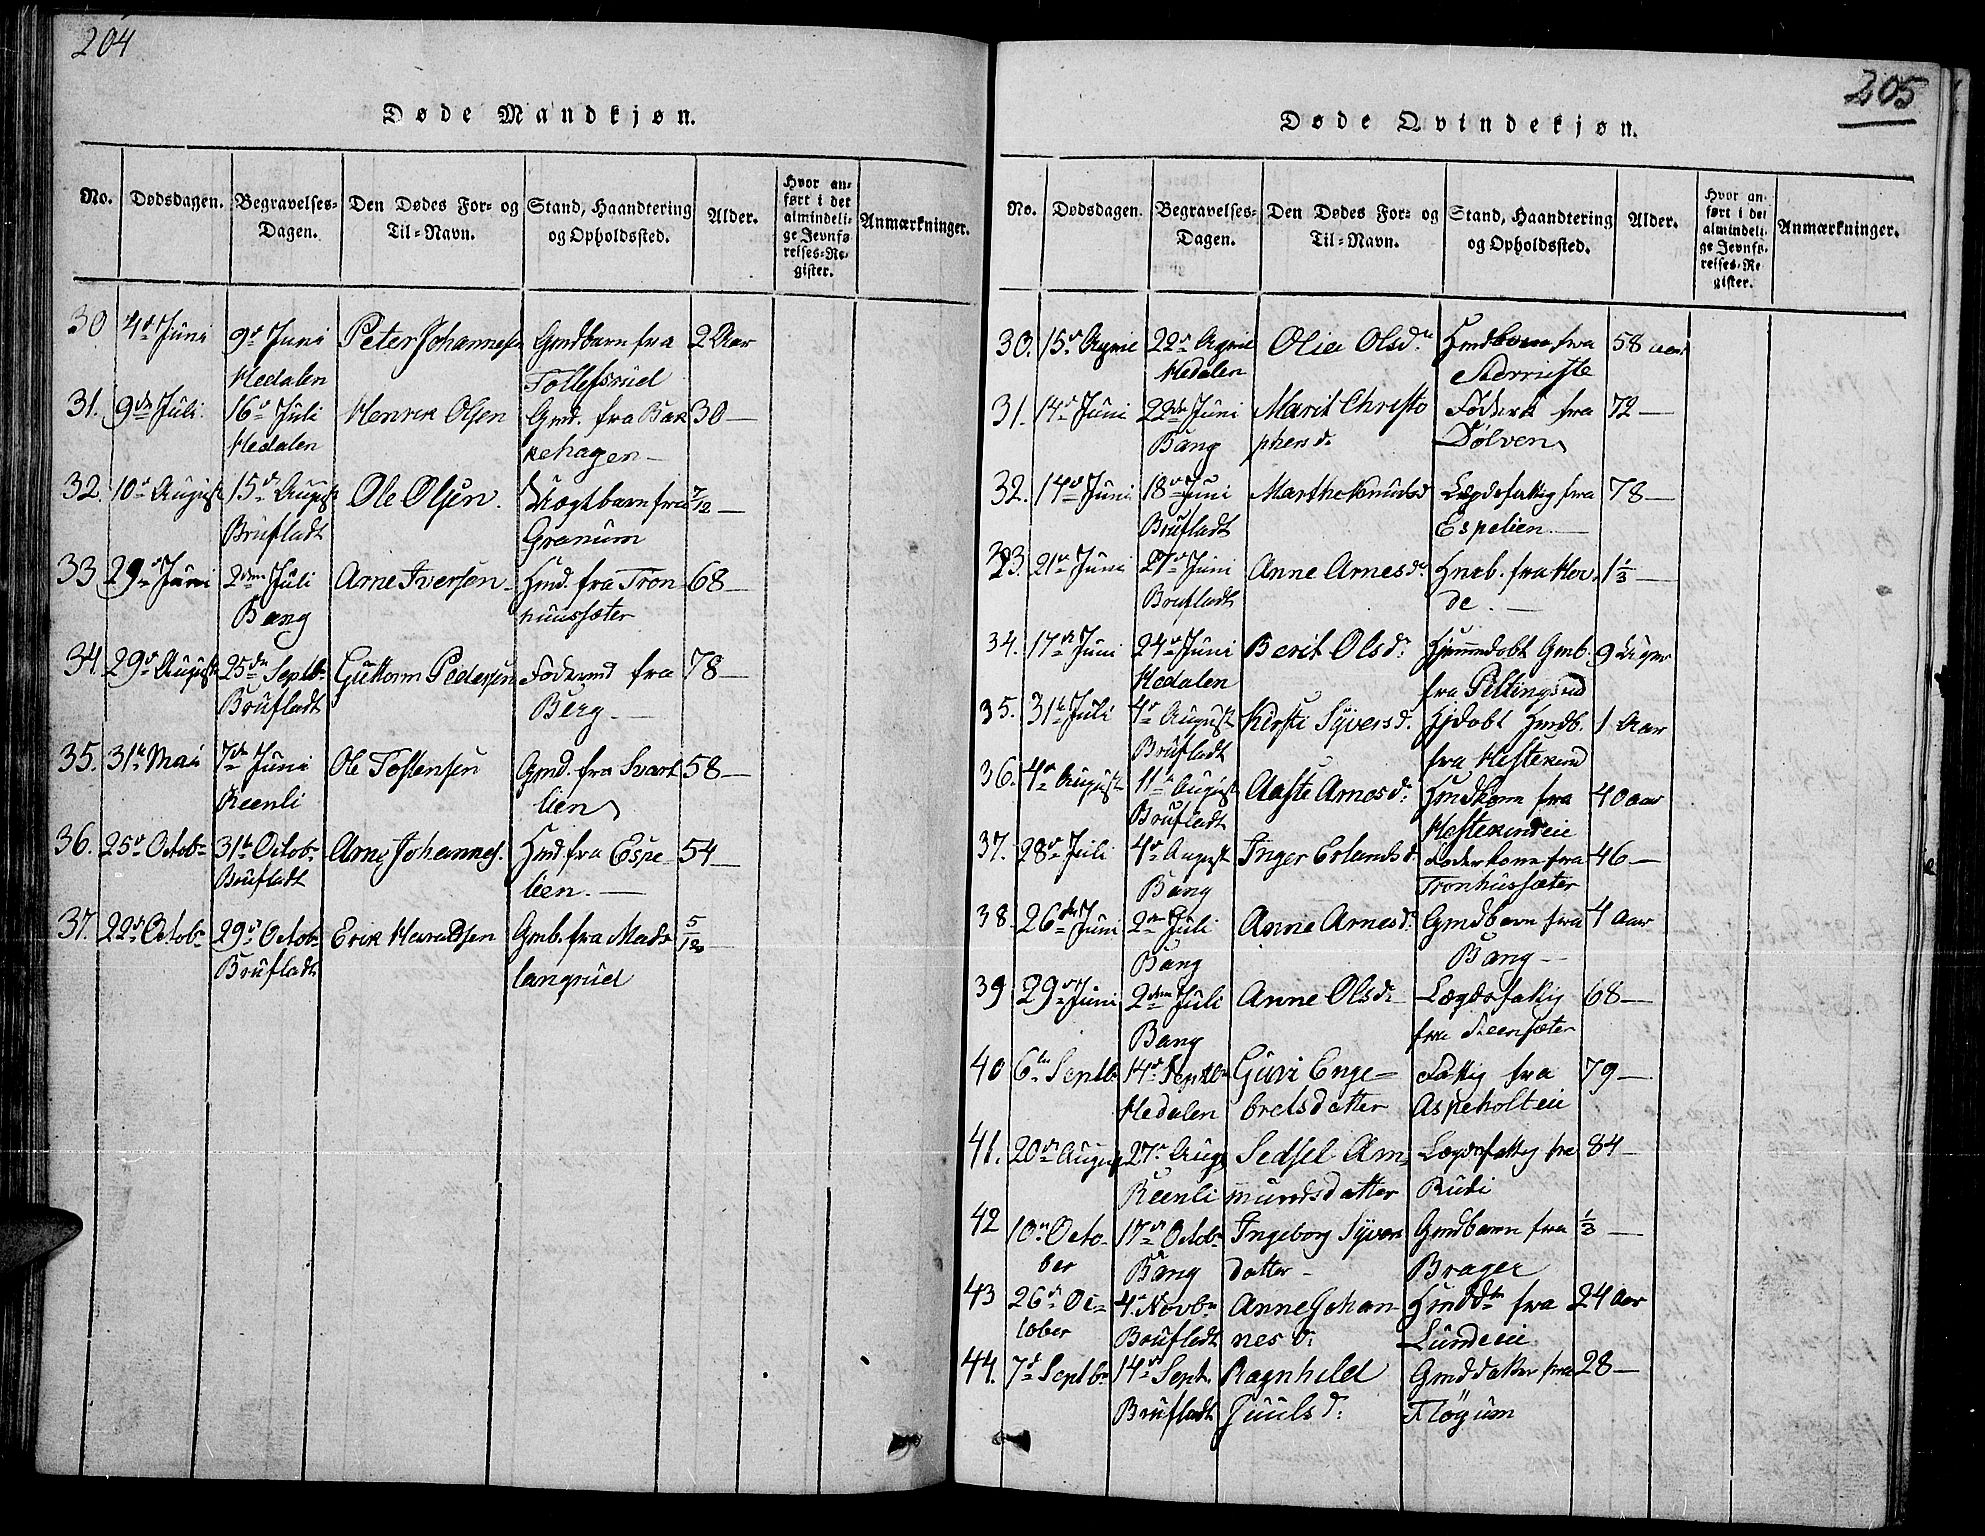 204
Døde Mandkjøn.
No. Dødsdagen. Begravelses-Dagen. Den Dødes For- og Til-Navn. Stand, Haandtering og Opholdssted. Alder. Hvor anført i det almindelige Jevnførelses-Register. Anmærkninger.
30 4de Juni 9de Juni Peter Johannesen Gmdbarn fra 2 Aar
Hedalen Tollefsrud
31. 9de Juli 16de Juli Henrik Olsen Gmd. fra Bak 30 —
Hedalen kehagen —
32. 10de August 15de August Ole Olsen. Uægtbarn fra 7/12 —
Brufladt Granum
33 29de Juni 2den Juli Arne Iversen Hmd. fra Tron 68 —
Bang huussæter
34. 29de August 25de Septbr Guttorm Pedersen Fødermd fra 78 —
Brufladt Berg —
35. 31te Mai 7de Juni Ole Tostensen Gmd. fra Svart 58 —
Reenli lien
36. 25de Octobr 31te Octobr Arne Johannes. Hmd. fra Espe 54 —
Brufladt lien. —
37. 22de Octobr 29de Octobr Erik Haraldsen Gmb. fra Mads 5/12 —
Brufladt langrud
205
Døde Qvindekjøn.
No. Dødsdagen. Begravelses-Dagen. Den Dødes For- og Til-Navn. Stand, Haandtering og Opholdssted. Alder. Hvor anført i det almindelige Jevnførelses-Register. Anmærkninger.
30. 15de 22de Olia Olsdr fra 58 aar
Hedalen
31. 14de Juni 22de Juni Marit Christo fra 72 —
Bang phersd. Dølven
32. 14de Juni 18de Juni Marthe Knudsd Lægdsfattig fra 78 —
Brufladt Espelien —
33. 21de Juni 27de Juni Anne Arnesdr Hmb. fra Hov 1 1/3 —
Brufladt de. —
34. 17de Juni 24de Juni Berit Olsdr Hjemmedøbt Gmb. 9 Uger
Hedalen fra Pellingsrud
35. 31te Juli 4de August Kirsti Syversd. Hjdøbt Hmdb. 1 Aar
Brufladt fra Hestekind
36. 4de August 11te August Aaste Arnesd. Hmdkone fra 40 aar
Brufladt Hestekindeie
37. 28de Juli 4de August Inger Erlandsd. Føderkone fra 46 —
Bang Tronhussæter
38. 26de Juni 2den Juli Anne Arnesdr Gmdbarn fra 4 aar
Bang Bang —
39 29de Juni 2den Juli Anne Olsdr Lægdsfattig 68 —
Bang fra Steensæter
40 6te Septbr 14de Septbr Guri Enge= Fattig fra 79 —
Hedalen bretsdatter Aspeholteie
41. 20de August 27de Aug. Sedsel Am= Lægdsfattig fra 84 —
Reenli mundsdatter Rudi
42 10de Octo 17de Octobr Ingeborg Syvers Gmdbarn fra 1/3 —
ber Bang datter — Brager
43 26de Oc= 4de Novbr Anne Johan Hmddtr fra 24 aar
tober Brufladt nesd. Lundeeie
44. 7de Septbr 14de Sept. Ragnhild Gmddatter fra 28 —
Brufladt Juulsd. Fløgum